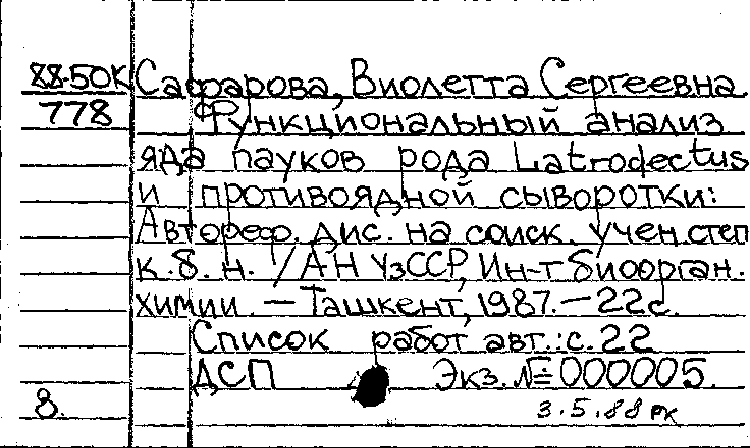 88-50К Сафарова, Виолетта Сергеевна
778 Функциональный анализ
яда пауков рода Latrodectus
и противоядной сыворотки:
Автореф. дис. на соиск. учен. степ
к. б. н. / АН УзССР, Ин-т биоорган.
химии. — Ташкент, 1987. — 22 с.
Список работ авт.: с. 22
ДСП Экз. № 000005.
8. 3.5.88 РК